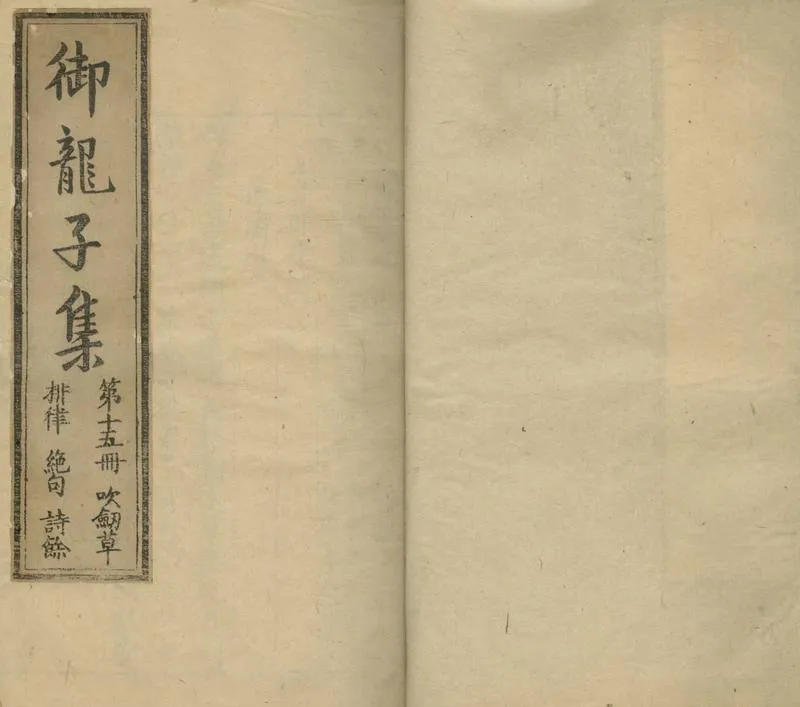 御龍子集
第十五冊 吹劒草
排律 絶句 詩餘